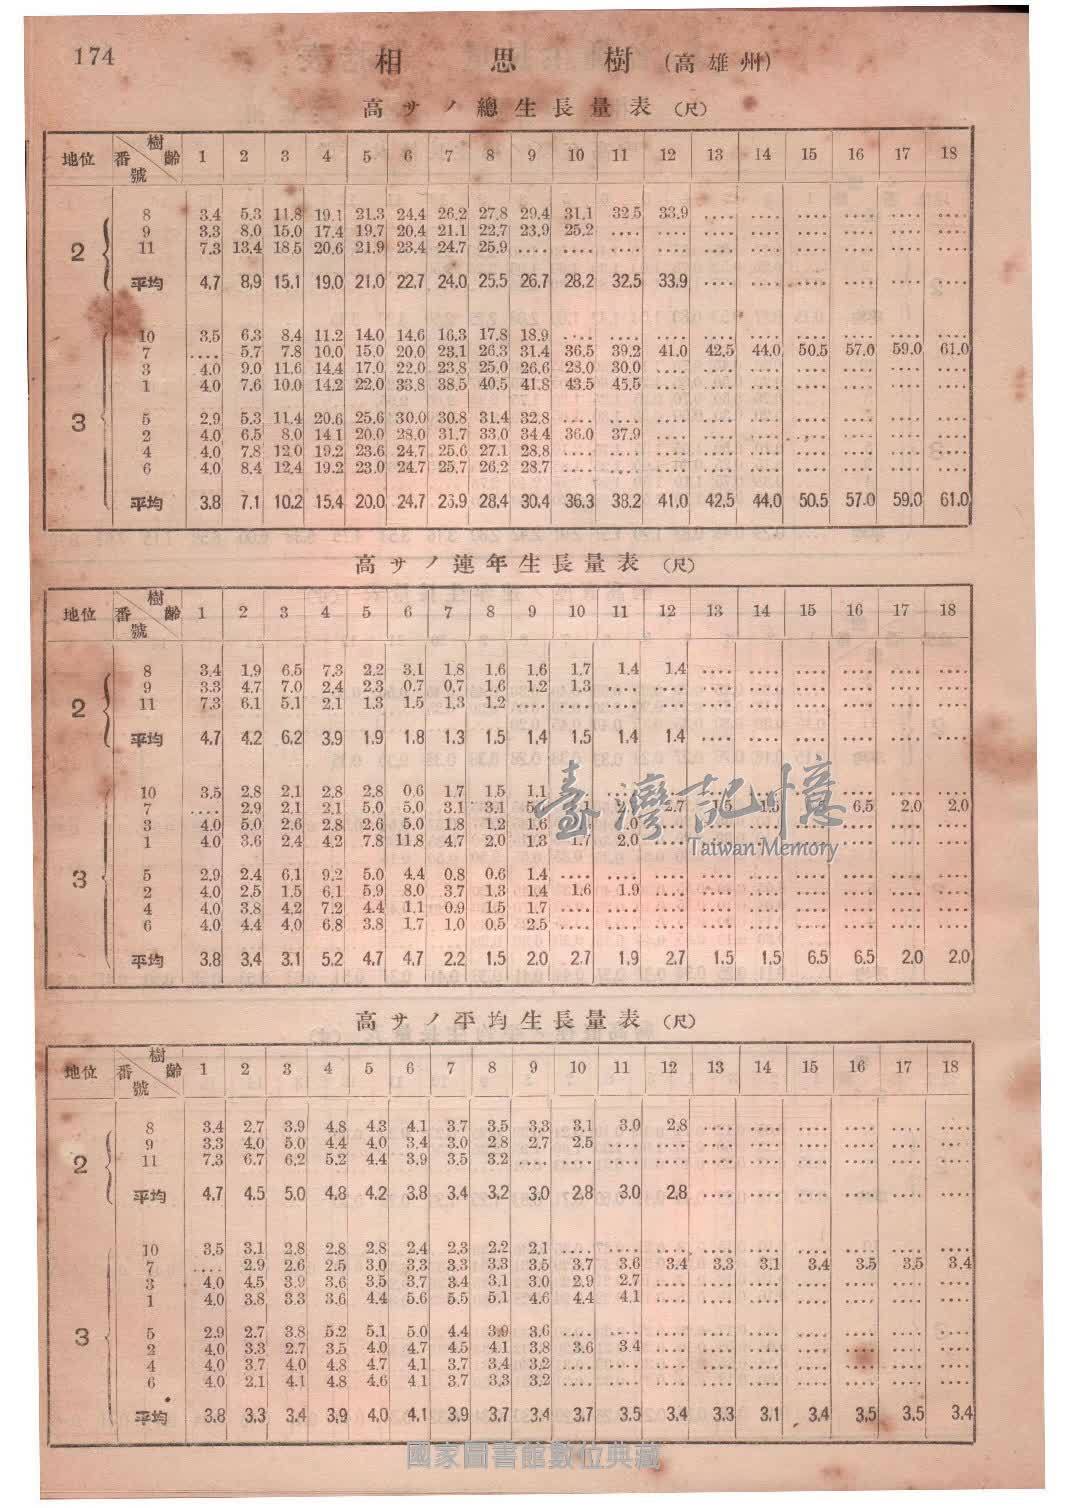 174
相思樹 (高雄州)
高サノ總生長量表 (尺)
地位 番號 樹齡 1 2 3 4 5 6 7 8 9 10 11 12 13 14 15 16 17 18
8 3.4 5.3 11.8 19.1 21.3 24.4 26.2 27.8 29.4 31.1 32.5 33.9 .... .... .... .... .... ....
9 3.3 8.0 15.0 17.4 19.7 20.4 21.1 22.7 23.9 25.2 .... .... .... .... .... .... .... ....
2 11 7.3 13.4 18.5 20.6 21.9 23.4 24.7 25.9 .... .... .... .... .... .... .... .... .... ....
平均 4.7 8.9 15.1 19.0 21.0 22.7 24.0 25.5 26.7 28.2 32.5 33.9 .... .... .... .... .... ....
10 3.5 6.3 8.4 11.2 14.0 14.6 16.3 17.8 18.9 .... .... .... .... .... .... .... .... ....
7 .... 5.7 7.8 10.0 15.0 20.0 23.1 26.3 31.4 36.5 39.2 41.0 42.5 44.0 50.5 57.0 59.0 61.0
3 4.0 9.0 11.6 14.4 17.0 22.0 23.8 25.0 26.6 28.0 30.0 .... .... .... .... .... .... ....
1 4.0 7.6 10.0 14.2 22.0 33.8 38.5 40.5 41.8 43.5 45.5 .... .... .... .... .... .... ....
3 5 2.9 5.3 11.4 20.6 25.6 30.0 30.8 31.4 32.8 .... .... .... .... .... .... .... .... ....
2 4.0 6.5 8.0 14.1 20.0 28.0 31.7 33.0 34.4 36.0 37.9 .... .... .... .... .... .... ....
4 4.0 7.8 12.0 19.2 23.6 24.7 25.6 27.1 28.8 .... .... .... .... .... .... .... .... ....
6 4.0 8.4 12.4 19.2 23.0 24.7 25.7 26.2 28.7 .... .... .... .... .... .... .... .... ....
平均 3.8 7.1 10.2 15.4 20.0 24.7 26.9 28.4 30.4 36.3 38.2 41.0 42.5 44.0 50.5 57.0 59.0 61.0
高サノ連年生長量表 (尺)
地位 番號 樹齡 1 2 3 4 5 6 7 8 9 10 11 12 13 14 15 16 17 18
8 3.4 1.9 6.5 7.3 2.2 3.1 1.8 1.6 1.6 1.7 1.4 1.4 .... .... .... .... .... ....
9 3.3 4.7 7.0 2.4 2.3 0.7 0.7 1.6 1.2 1.3 .... .... .... .... .... .... .... ....
2 11 7.3 6.1 5.1 2.1 1.3 1.5 1.3 1.2 .... .... .... .... .... .... .... .... .... ....
平均 4.7 4.2 6.2 3.9 1.9 1.8 1.3 1.5 1.4 1.5 1.4 1.4 .... .... .... .... .... ....
10 3.5 2.8 2.1 2.8 2.8 0.6 1.7 1.5 1.1 .... .... .... .... .... .... ....
7 .... 2.9 2.1 2.1 5.0 5.0 3.1 3.1 2.7 1.5 6.5 2.0 2.0
3 4.0 5.0 2.6 2.8 2.6 5.0 1.8 1.2 1.6 .... .... .... ....
1 4.0 3.6 2.4 4.2 7.8 11.8 4.7 2.0 1.3 1.7 2.0 .... .... .... .... .... .... ....
臺灣記憶
Taiwan Memory
3 5 2.9 2.4 6.1 9.2 5.0 4.4 0.8 0.6 1.4 .... .... .... .... .... .... .... .... ....
2 4.0 2.5 1.5 6.1 5.9 8.0 3.7 1.3 1.4 1.6 1.9 .... .... .... .... .... .... ....
4 4.0 3.8 4.2 7.2 4.4 1.1 0.9 1.5 1.7 .... .... .... .... .... .... .... .... ....
6 4.0 4.4 4.0 6.8 3.8 1.7 1.0 0.5 2.5 .... .... .... .... .... .... .... .... ....
平均 3.8 3.4 3.1 5.2 4.7 4.7 2.2 1.5 2.0 2.7 1.9 2.7 1.5 1.5 6.5 6.5 2.0 2.0
高サノ平均生長量表 (尺)
地位 番號 樹齡 1 2 3 4 5 6 7 8 9 10 11 12 13 14 15 16 17 18
8 3.4 2.7 3.9 4.8 4.3 4.1 3.7 3.5 3.3 3.1 3.0 2.8 .... .... .... .... .... ....
9 3.3 4.0 5.0 4.4 4.0 3.4 3.0 2.8 2.7 2.5 .... .... .... .... .... .... .... ....
2 11 7.3 6.7 6.2 5.2 4.4 3.9 3.5 3.2 .... .... .... .... .... .... .... .... .... ....
平均 4.7 4.5 5.0 4.8 4.2 3.8 3.4 3.2 3.0 2.8 3.0 2.8 .... .... .... .... .... ....
10 3.5 3.1 2.8 2.8 2.8 2.4 2.3 2.2 2.1 .... .... .... .... .... .... .... .... ....
7 .... 2.9 2.6 2.5 3.0 3.3 3.3 3.3 3.5 3.7 3.6 3.4 3.3 3.1 3.4 3.5 3.5 3.4
3 4.0 4.5 3.9 3.6 3.5 3.7 3.4 3.1 3.0 2.9 2.7 .... .... .... .... .... .... ....
1 4.0 3.8 3.3 3.6 4.4 5.6 5.5 5.1 4.6 4.4 4.1 .... .... .... .... .... .... ....
3 5 2.9 2.7 3.8 5.2 5.1 5.0 4.4 3.9 3.6 .... .... .... .... .... .... .... .... ....
2 4.0 3.3 2.7 3.5 4.0 4.7 4.5 4.1 3.8 3.6 3.4 .... .... .... .... .... .... ....
4 4.0 3.7 4.0 4.8 4.7 4.1 3.7 3.4 3.2 .... .... .... .... .... .... .... .... ....
6 4.0 2.1 4.1 4.8 4.6 4.1 3.7 3.3 3.2 .... .... .... .... .... .... .... .... ....
平均 3.8 3.3 3.4 3.9 4.0 4.1 3.9 3.7 3.4 3.7 3.5 3.4 3.3 3.1 3.4 3.5 3.5 3.4
國家圖書館數位典藏